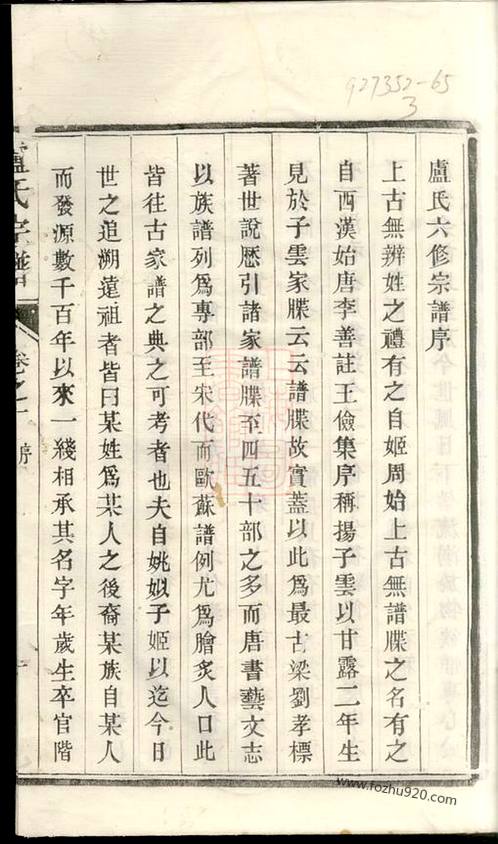 927352-65
3
盧氏六修宗譜序
上古無辨姓之禮有之自姬周始上古無譜牒之名有之
自西漢始唐李善註王儉集序稱揚子雲以甘露二年生
見於子雲家牒云云譜牒故實蓋以此爲最古梁劉孝標
著世說歷引諸家譜牒至四五十部之多而唐書藝文志
以族譜列爲專部至宋代而歐蘇譜例尤爲膾炙人口此
皆往古家譜之典之可考者也夫自姚姒子姬以迄今日
世之追溯遠祖者皆曰某姓爲某人之後裔某族自某人
而發源數千百年以來一綫相承其名字年歲生卒官階
盧氏宗譜 卷之一 序 一
www.fozhu920.com